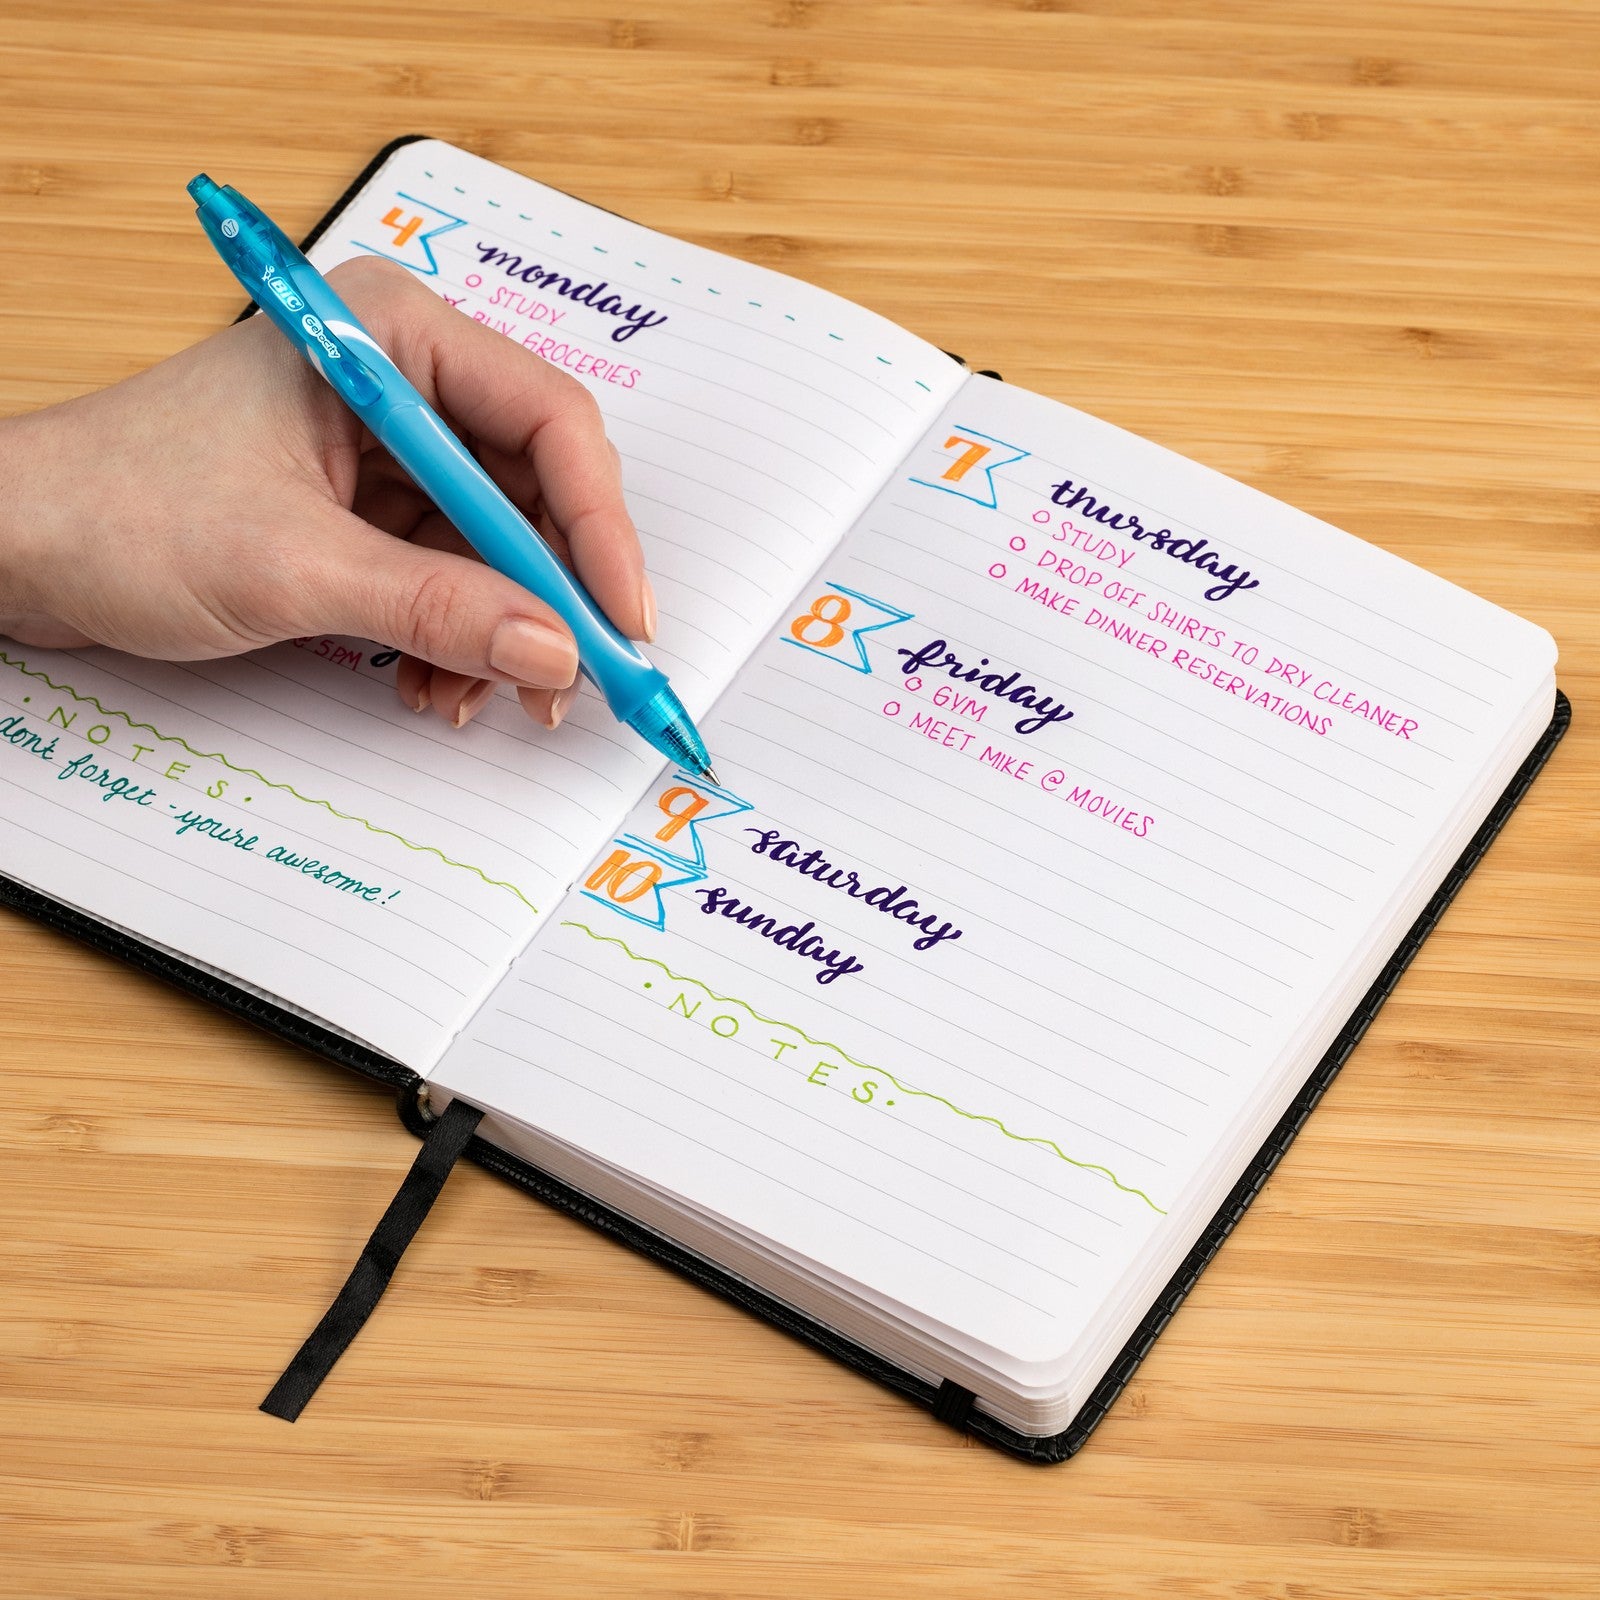 4 monday
STUDY
BUY GROCERIES
@ 5PM
• NOTES •
don't forget - you're awesome!
7 thursday
STUDY
DROP OFF SHIRTS TO DRY CLEANER
MAKE DINNER RESERVATIONS
8 friday
GYM
MEET MIKE @ MOVIES
9 saturday
10 sunday
• NOTES •
0.7
BIC Gelocity